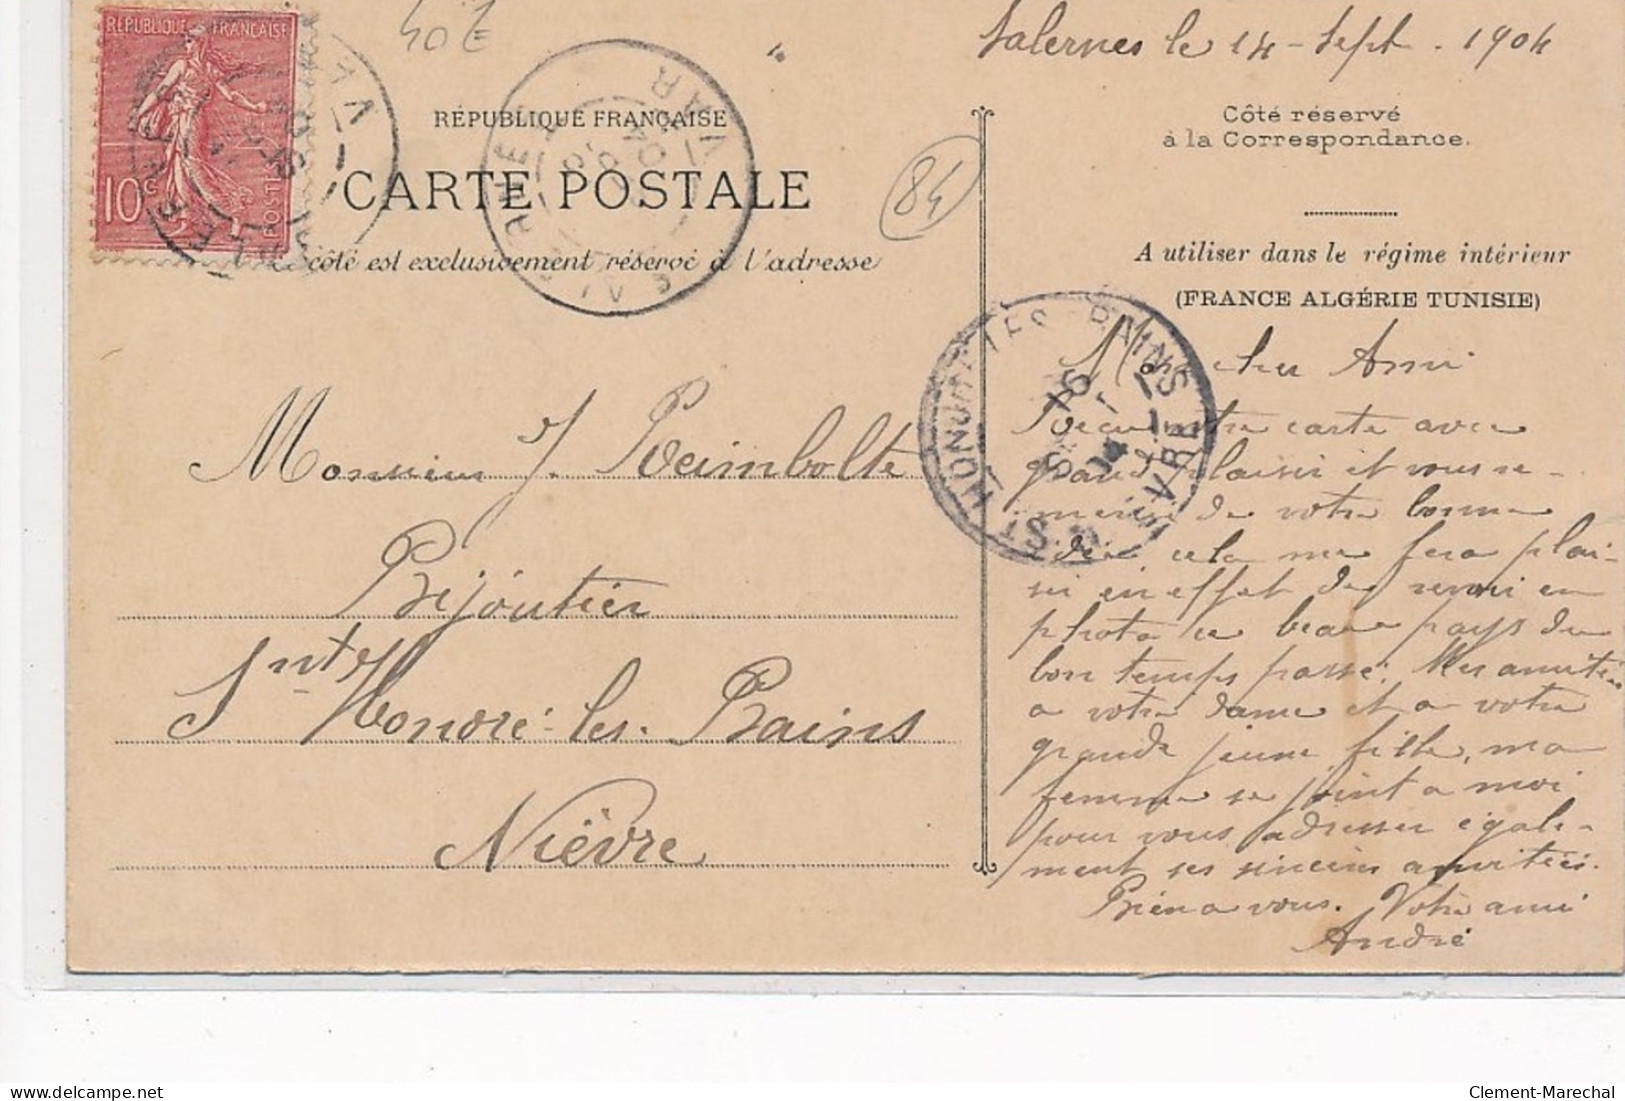 RÉPUBLIQUE FRANÇAISE
10c
POSTES
40 E
Salernes le 14 - Sept - 1904
RÉPUBLIQUE FRANÇAISE
CARTE POSTALE
84
côté est exclusivement réservé à l'adresse
VAR
Côté réservé
à la Correspondance.
A utiliser dans le régime intérieur
(FRANCE ALGÉRIE TUNISIE)
ST HONORÉ LES BAINS
NIÈVRE
16
04
Monsieur J. Reimbolte
Bijoutier
Snt Honoré-les-Bains
Nièvre
Mon cher Ami
Reçu votre carte avec
grand plaisir et vous re-
mercie de votre bonne
idée cela me fera plai-
sir en effet de revoir en
photo ce beau pays du
bon temps passé. Mes amitiés
a votre dame et a votre
grande jeune fille, ma
femme se joint a moi
pour vous adresser égale-
ment ses sincères amitiés.
Bien a vous. Votre ami
André
delcampe.net
Clement-Marechal